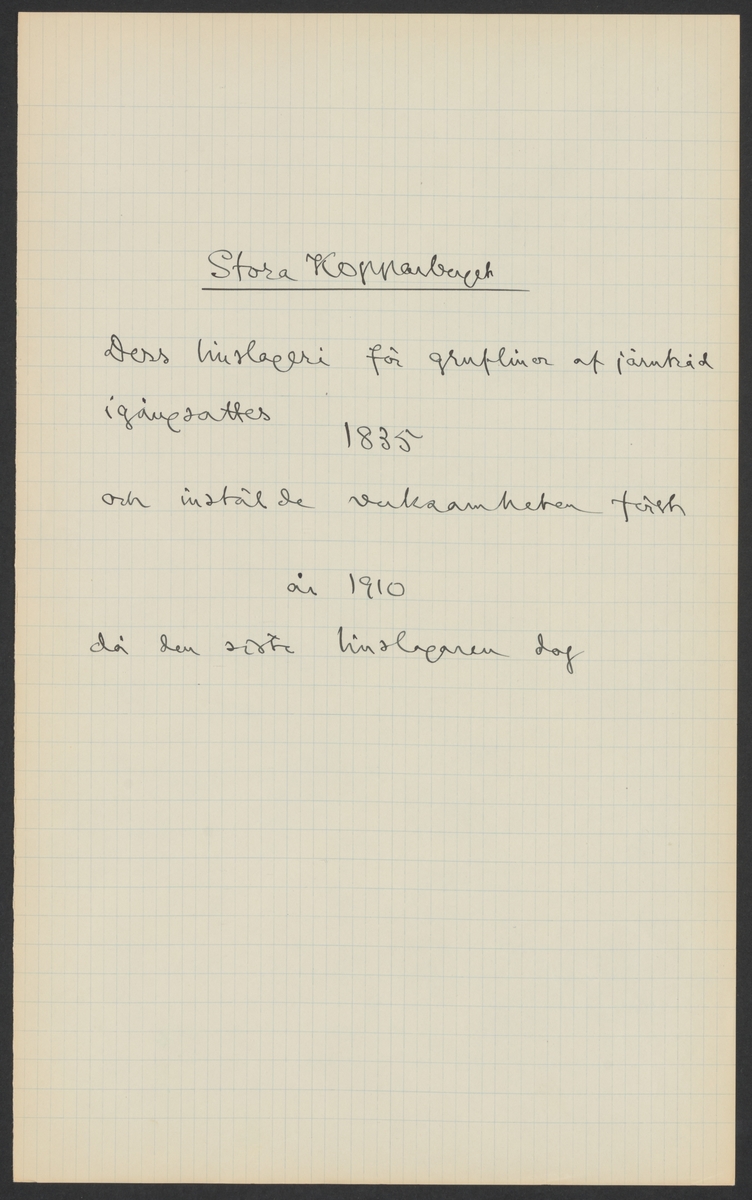 Stora Kopparberget
Dess linslageri för gruflinor af järntråd
igångsattes
1835
och instälde verksamheten först
år 1910
då den siste linslagaren dog